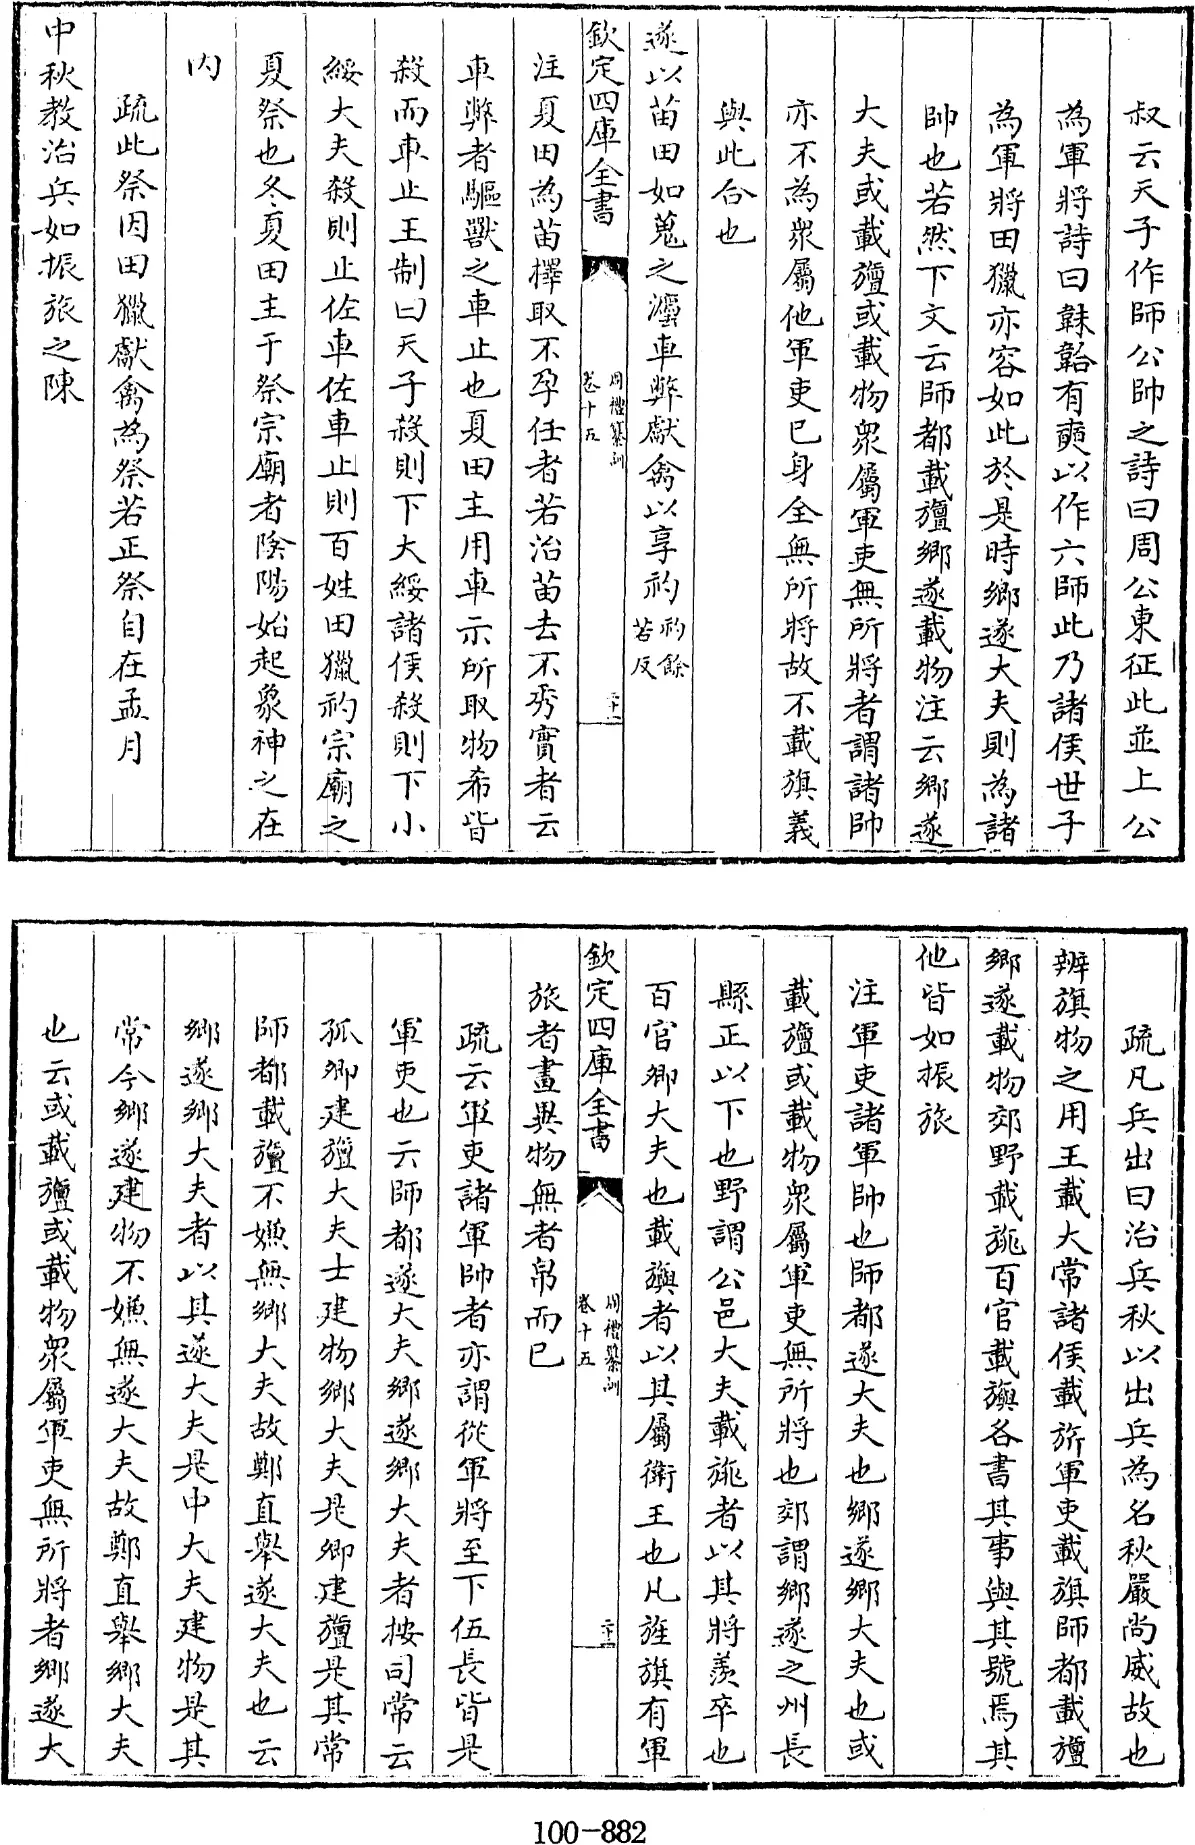 叔云天子作師公帥之詩曰周公東征此並上公
為軍將詩曰韎韐有奭以作六師此乃諸侯世子
為軍將田獵亦容如此於是時鄉遂大夫則為諸
帥也若然下文云師都載旜鄉遂載物注云鄉遂
大夫或載旜或載物衆屬軍吏無所將者謂諸帥
亦不為衆屬他軍吏已身全無所將故不載旗義
與此合也
遂以苗田如蒐之灋車弊獻禽以享礿礿餘若反
欽定四庫全書
周禮纂訓
卷十五
二十一
注夏田為苗擇取不孕任者若治苗去不秀實者云
車弊者驅獸之車止也夏田主用車示所取物希皆
殺而車止王制曰天子殺則下大綏諸侯殺則下小
綏大夫殺則止佐車佐車止則百姓田獵礿宗廟之
夏祭也冬夏田主于祭宗廟者陰陽始起象神之在
內
疏此祭因田獵獻禽為祭若正祭自在孟月
中秋教治兵如振旅之陳
疏凡兵出曰治兵秋以出兵為名秋嚴尚威故也
辨旗物之用王載大常諸侯載旂軍吏載旗師都載旜
鄉遂載物郊野載旐百官載旟各書其事與其號焉其
他皆如振旅
注軍吏諸軍帥也師都遂大夫也鄉遂鄉大夫也或
載旜或載物衆屬軍吏無所將也郊謂鄉遂之州長
縣正以下也野謂公邑大夫載旐者以其將羨卒也
百官卿大夫也載旟者以其屬衛王也凡旌旗有軍
欽定四庫全書
周禮纂訓
卷十五
旅者畫異物無者帛而已
疏云軍吏諸軍帥者亦謂從軍將至下伍長皆是
軍吏也云師都遂大夫鄉遂鄉大夫者按司常云
孤卿建旜大夫士建物鄉大夫是卿建旜是其常
師都載旜不嫌無鄉大夫故鄭直舉遂大夫也云
鄉遂鄉大夫者以其遂大夫是中大夫建物是其
常今鄉遂建物不嫌無遂大夫故鄭直舉鄉大夫
也云或載旜或載物衆屬軍吏無所將者鄉遂大
100-882